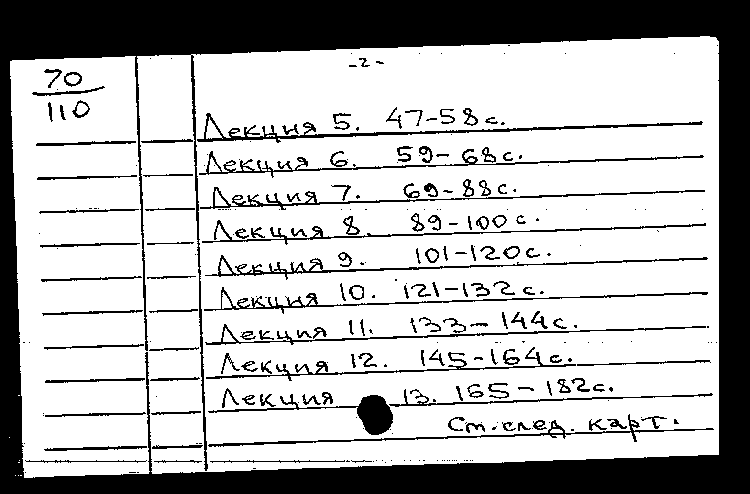 -2-
70
110
Лекция 5. 47-58с.
Лекция 6. 59-68с.
Лекция 7. 69-88с.
Лекция 8. 89-100с.
Лекция 9. 101-120с.
Лекция 10. 121-132с.
Лекция 11. 133-144с.
Лекция 12. 145-164с.
Лекция 13. 165-182с.
См. след. карт.